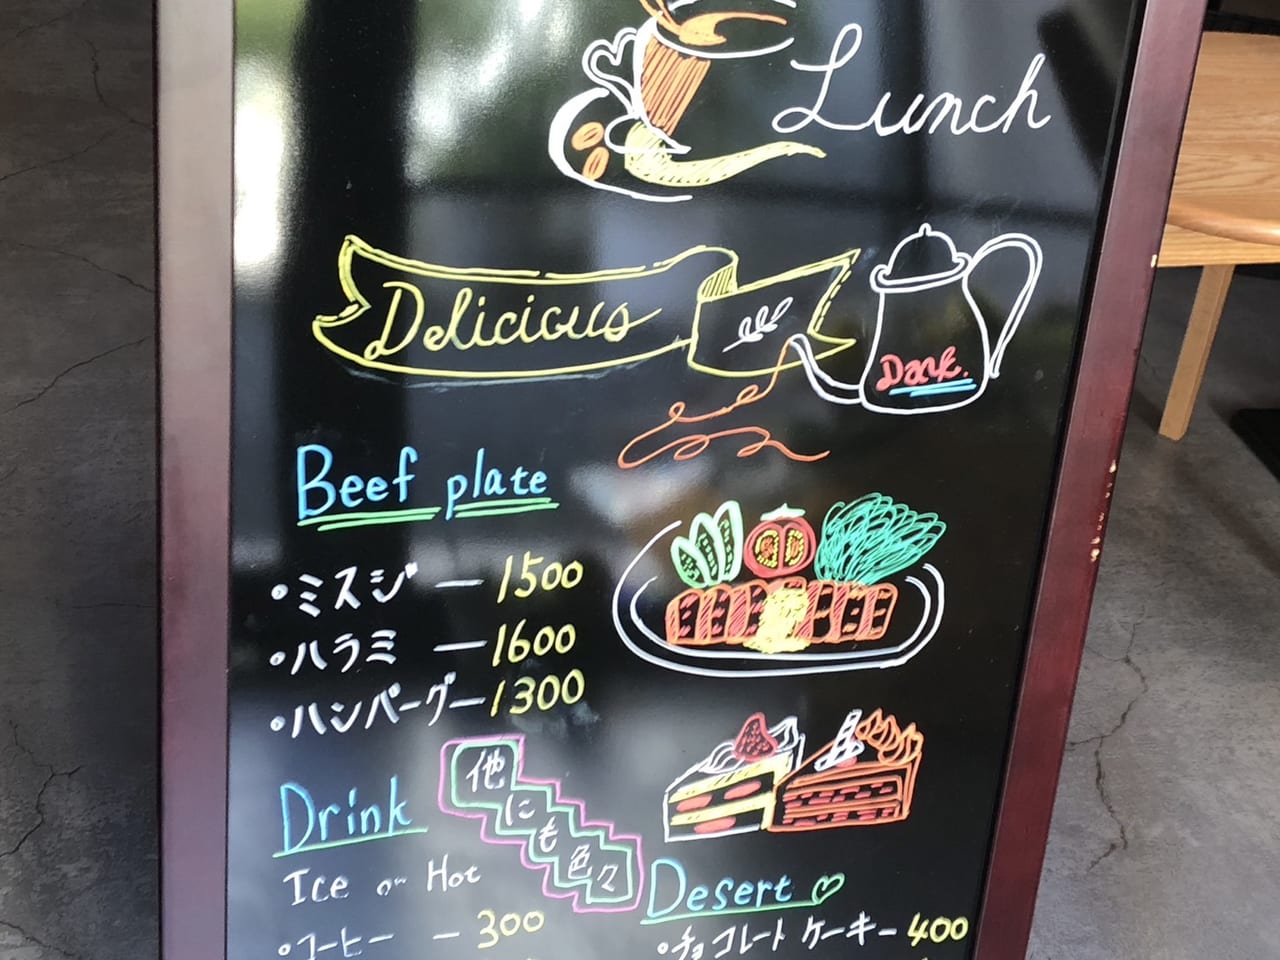 Lunch
Delicious
Dark.
Beef plate
・ミスジ — 1500
・ハラミ — 1600
・ハンバーグ — 1300
他にも色々
Drink
Ice or Hot
・コーヒー — 300
Desert ♡
・チョコレートケーキ — 400